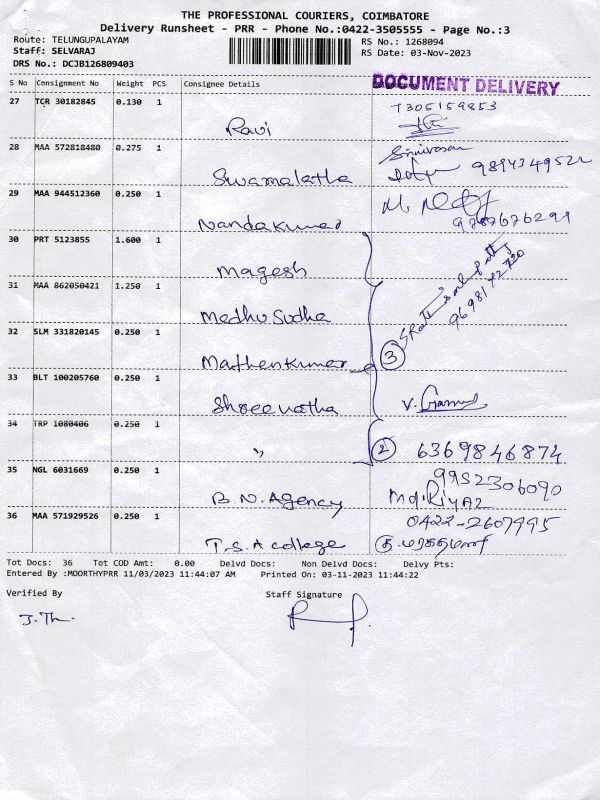 THE PROFESSIONAL COURIERS, COIMBATORE
Delivery Runsheet - PRR - Phone No.:0422-3505555 - Page No.:3
Route: TELUNGUPALAYAM RS No.: 1268094
Staff: SELVARAJ RS Date: 03-Nov-2023
DRS No.: DCJB126809403
S No Consignment No Weight PCS Consignee Details DOCUMENT DELIVERY
27 TCR 30182845 0.130 1 7305159853
Ravi
28 MAA 572818480 0.275 1 Srinivasan
Swarnalatha
29 MAA 944512360 0.250 1
Nandakumar
30 PRT 5123855 1.600 1
Magesh
31 MAA 862050421 1.250 1
Madhu Sudha
32 SLM 331820145 0.250 1
Mathenkumar 3
33 BLT 100205760 0.250 1
Shreevatha V.
34 TRP 1080406 0.250 1
" 2 6369846874
35 NGL 6031669 0.250 1 9952306090
B.N. Agency Md. Riyaz
36 MAA 571929526 0.250 1 0422-2607995
T.S.A college
Tot Docs: 36 Tot COD Amt: 0.00 Delvd Docs: Non Delvd Docs: Delvy Pts:
Entered By :MOORTHYPRR 11/03/2023 11:44:07 AM Printed On: 03-11-2023 11:44:22
Verified By Staff Signature